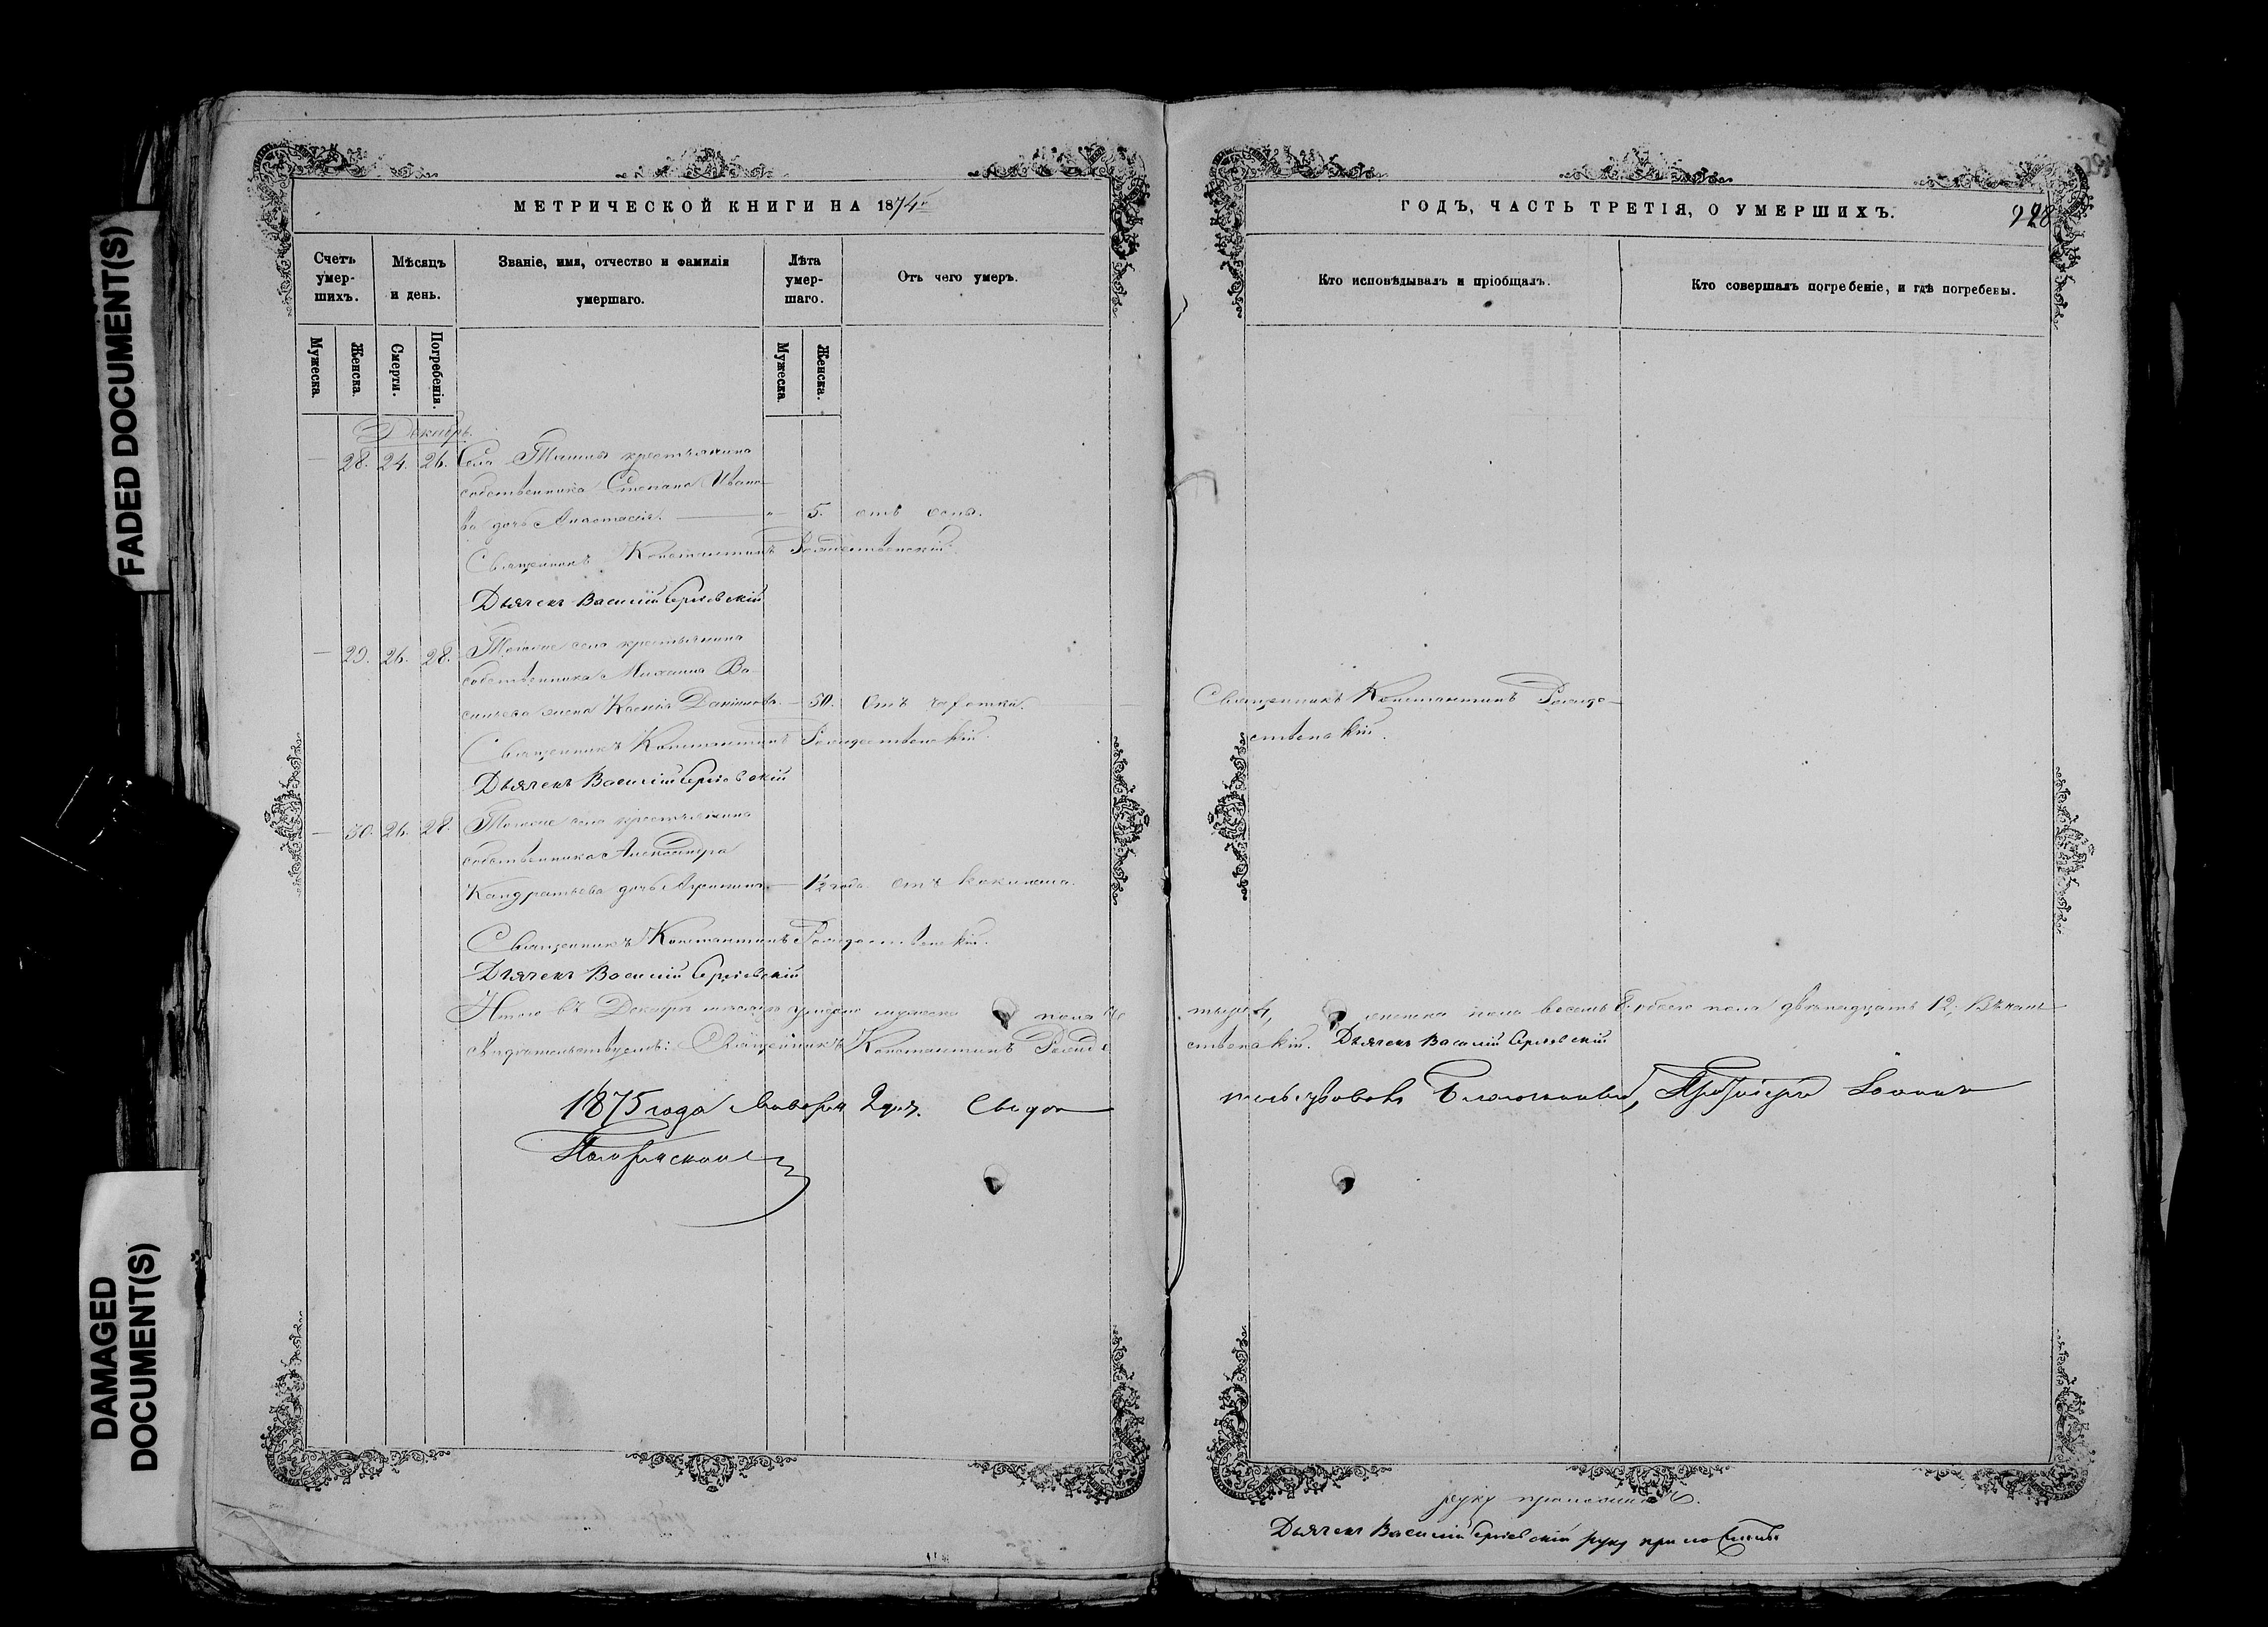 FADED DOCUMENT(S)
DAMAGED
DOCUMENT(S)
МЕТРИЧЕСКОЙ КНИГИ НА 1874
Счетъ
умер-
шихъ.
Мѣсяцъ
и день.
Званіе, имя, отчество и фамилія
умершаго.
Лѣта
умер-
шаго.
Отъ чего умеръ.
Мужеска.
Женска.
Смерти.
Погребенія.
Мужеска.
Женска.
Декабрь.
28. 24. 26. Села крестьянина
собственника Степана Ивано-
ва дочь Анастасія. 5. отъ оспы.
Священникъ Константинъ Рождественскій.
Дьячекъ Василій Сергіевскій
29. 26. 28. Тогоже села крестьянина
собственника Михаила Ва-
сильева жена Ксенія 50. Отъ чахотки.
Священникъ Константинъ Рождественскій.
Дьячекъ Василій Сергіевскій
30. 26. 28. Тогоже села крестьянина
собственника Александра
Кандратьева дочь 1½ года. Отъ
Священникъ Константинъ Рождественскій.
Дьячекъ Василій Сергіевскій
Итого въ Декабрѣ мѣсяцѣ умерло мужеска пола че
свидѣтельствуемъ: Священникъ Константинъ Рожде
1875 года Января 2 дня. Свидѣ
ГОДЪ, ЧАСТЬ ТРЕТІЯ, О УМЕРШИХЪ.
228
Кто исповѣдывалъ и пріобщалъ.
Кто совершалъ погребеніе, и гдѣ погребены.
Священникъ Константинъ Рожде-
ственскій.
тыре 4, женска пола восемь 8. обоего пола двѣнадцать 12;
ственскій. Дьячекъ Василій Сергіевскій
тельствовалъ Благочинный, Іоаннъ
руку приложилъ.
Дьячекъ Василій Сергіевскій руку приложилъ